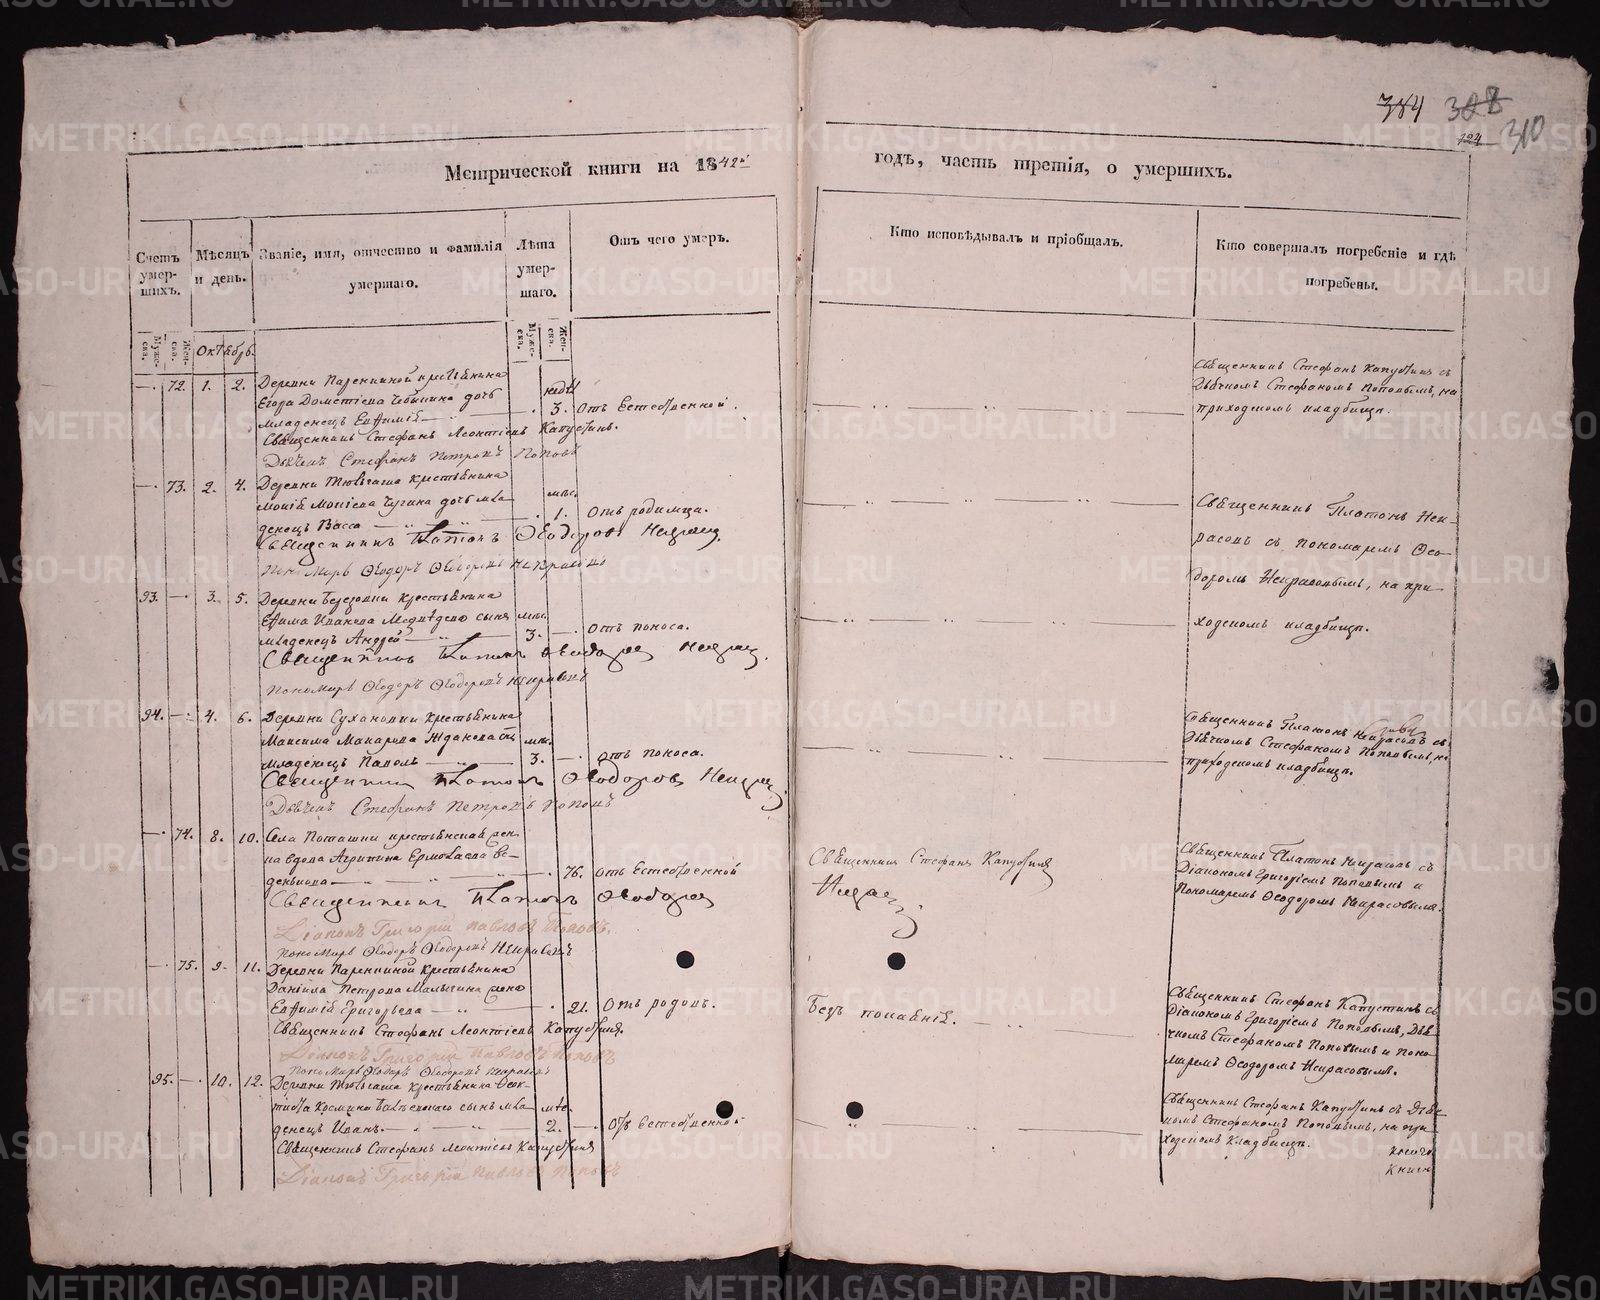 384 388
124 310
Метрической книги на 1842й годъ, часть третія, о умершихъ.
Счетъ умер-
шихъ.
Мѣсяцъ
и день.
Званіе, имя, отчество и фамилія
умершаго.
Лѣта
умер-
шаго.
Отъ чего умеръ.
Кто исповѣдывалъ и пріобщалъ.
Кто совершалъ погребеніе и гдѣ
погребены.
Муже-
ска.
Жен-
ска.
Муже-
ска.
Жен-
ска.
Октябрь.
—. 72. 1. 2. Деревни крестьянина
Егора Дометіева дочь
младенецъ Евѳимія — 3. отъ Естественной.
Священникъ Стефанъ Леонтіевъ Капустинъ.
Дьячекъ Стефанъ Петровъ Поповъ
Священникъ Стефанъ Капустинъ съ
Дьячкомъ Стефаномъ Поповымъ, на
приходскомъ кладбищѣ.
—. 73. 2. 4. Деревни крестьянина
дочь мла-
денецъ Васса — 1. отъ родимца.
Священникъ Платонъ Ѳеодоровъ
Пономарь Ѳеодоръ Ѳеодоровъ Некрасовъ
Священникъ Платонъ Нек-
расовъ съ пономаремъ Ѳео-
доромъ Некрасовымъ, на при-
ходскомъ кладбищѣ.
93. —. 3. 5. Деревни Березовки крестьянина
Ефима Иванова Медвѣдева сынъ мѣс.
младенецъ Андрей — 3. —. отъ поноса.
Священникъ Платонъ Ѳеодоров
Пономарь Ѳеодоръ Ѳеодоровъ Некрасовъ
94. —. 4. 6. Деревни Сухановки крестьянина
Максима Макарова Жданова сынъ мѣс.
младенецъ Павелъ — 3. —. отъ поноса.
Священникъ Платонъ Ѳеодоровъ
Дьячекъ Стефанъ Петровъ Поповъ
Священникъ Платонъ Некрасовъ съ
Дьячкомъ Стефаномъ Поповымъ, на
приходскомъ кладбищѣ.
—. 74. 8. 10. Села Поташки крестьянская жен-
ка вдова Агрипина Ермолаева
— 76. отъ Естественной
Священникъ Платонъ Ѳеодоров
Діаконъ Григорій Павловъ Поповъ.
Пономарь Ѳеодоръ Ѳеодоровъ Некрасовъ
Священникъ Стефанъ Капустинъ
Священникъ Платонъ Некрасовъ съ
Діакономъ Григоріемъ Поповымъ и
Пономаремъ Ѳеодоромъ Некрасовымъ.
—. 75. 9. 11. Деревни крестьянина
Даніила Петрова Малыгина жена
Евѳимія Григорьева — 21. отъ родовъ.
Священникъ Стефанъ Леонтіевъ Капустинъ.
Діаконъ Григорій Павловъ Поповъ
Пономарь Ѳеодоръ Ѳеодоровъ Некрасовъ
Безъ покаянія.
Священникъ Стефанъ Капустинъ съ
Діакономъ Григоріемъ Поповымъ, Дья-
чкомъ Стефаномъ Поповымъ и Поно-
маремъ Ѳеодоромъ Некрасовымъ.
95. —. 10. 12. Деревни крестьянина Ѳеок-
тиста сынъ мла-
денецъ Иванъ — 2. —. отъ Естественной
Священникъ Стефанъ Леонтіевъ Капустинъ
Діаконъ Григорій Павловъ Поповъ
Священникъ Стефанъ Капустинъ съ Дьяч-
комъ Стефаномъ Поповымъ, на при-
ходскомъ Кладбищѣ.
METRIKI.GASO-URAL.RU